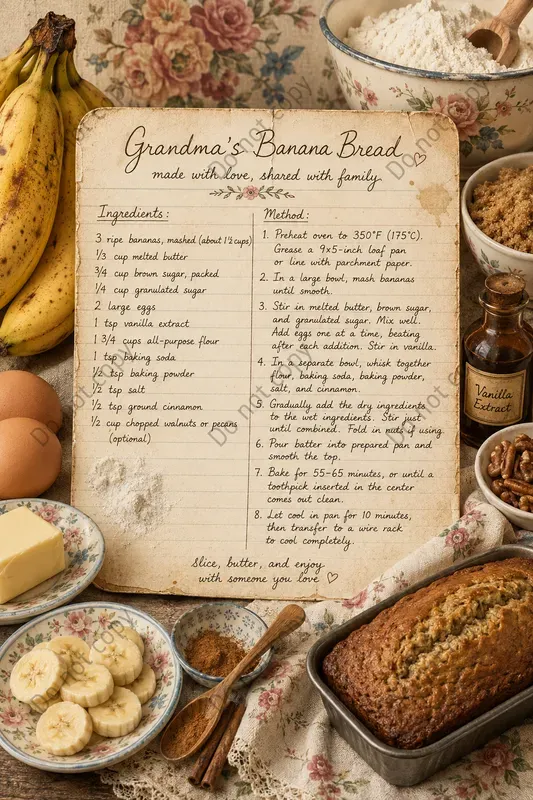 Grandma's Banana Bread ♡
made with love, shared with family
Ingredients:
3 ripe bananas, mashed (about 1 1/2 cups)
1/3 cup melted butter
3/4 cup brown sugar, packed
1/4 cup granulated sugar
2 large eggs
1 tsp vanilla extract
1 3/4 cups all-purpose flour
1 tsp baking soda
1/2 tsp baking powder
1/2 tsp salt
1/2 tsp ground cinnamon
1/2 cup chopped walnuts or pecans
(optional)
Method:
1. Preheat oven to 350°F (175°C).
Grease a 9x5-inch loaf pan
or line with parchment paper.
2. In a large bowl, mash bananas
until smooth.
3. Stir in melted butter, brown sugar,
and granulated sugar. Mix well.
Add eggs one at a time, beating
after each addition. Stir in vanilla.
4. In a separate bowl, whisk together
flour, baking soda, baking powder,
salt, and cinnamon.
5. Gradually add the dry ingredients
to the wet ingredients. Stir just
until combined. Fold in nuts if using.
6. Pour batter into prepared pan and
smooth the top.
7. Bake for 55-65 minutes, or until a
toothpick inserted in the center
comes out clean.
8. Let cool in pan for 10 minutes,
then transfer to a wire rack
to cool completely.
Slice, butter, and enjoy
with someone you love ♡
Vanilla
Extract
Do not copy
Do not copy
Do not copy
Do not copy
Do not copy
Do not copy
Do not copy
Do not copy
Do not copy
Do not copy
Do not copy
Do not copy